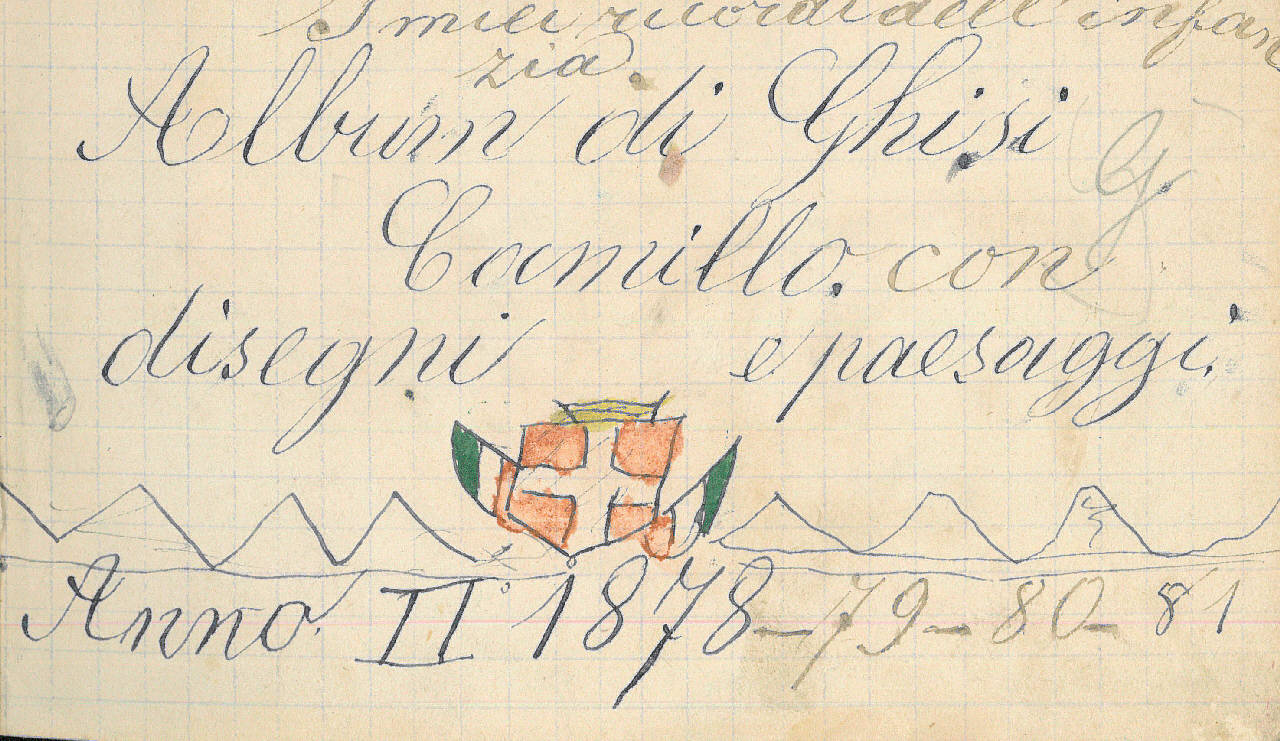 I miei ricordi dell'infan
zia.
Album di Ghisi
G
Camillo. con
disegni e paesaggi.
Anno II° 1878-79-80-81